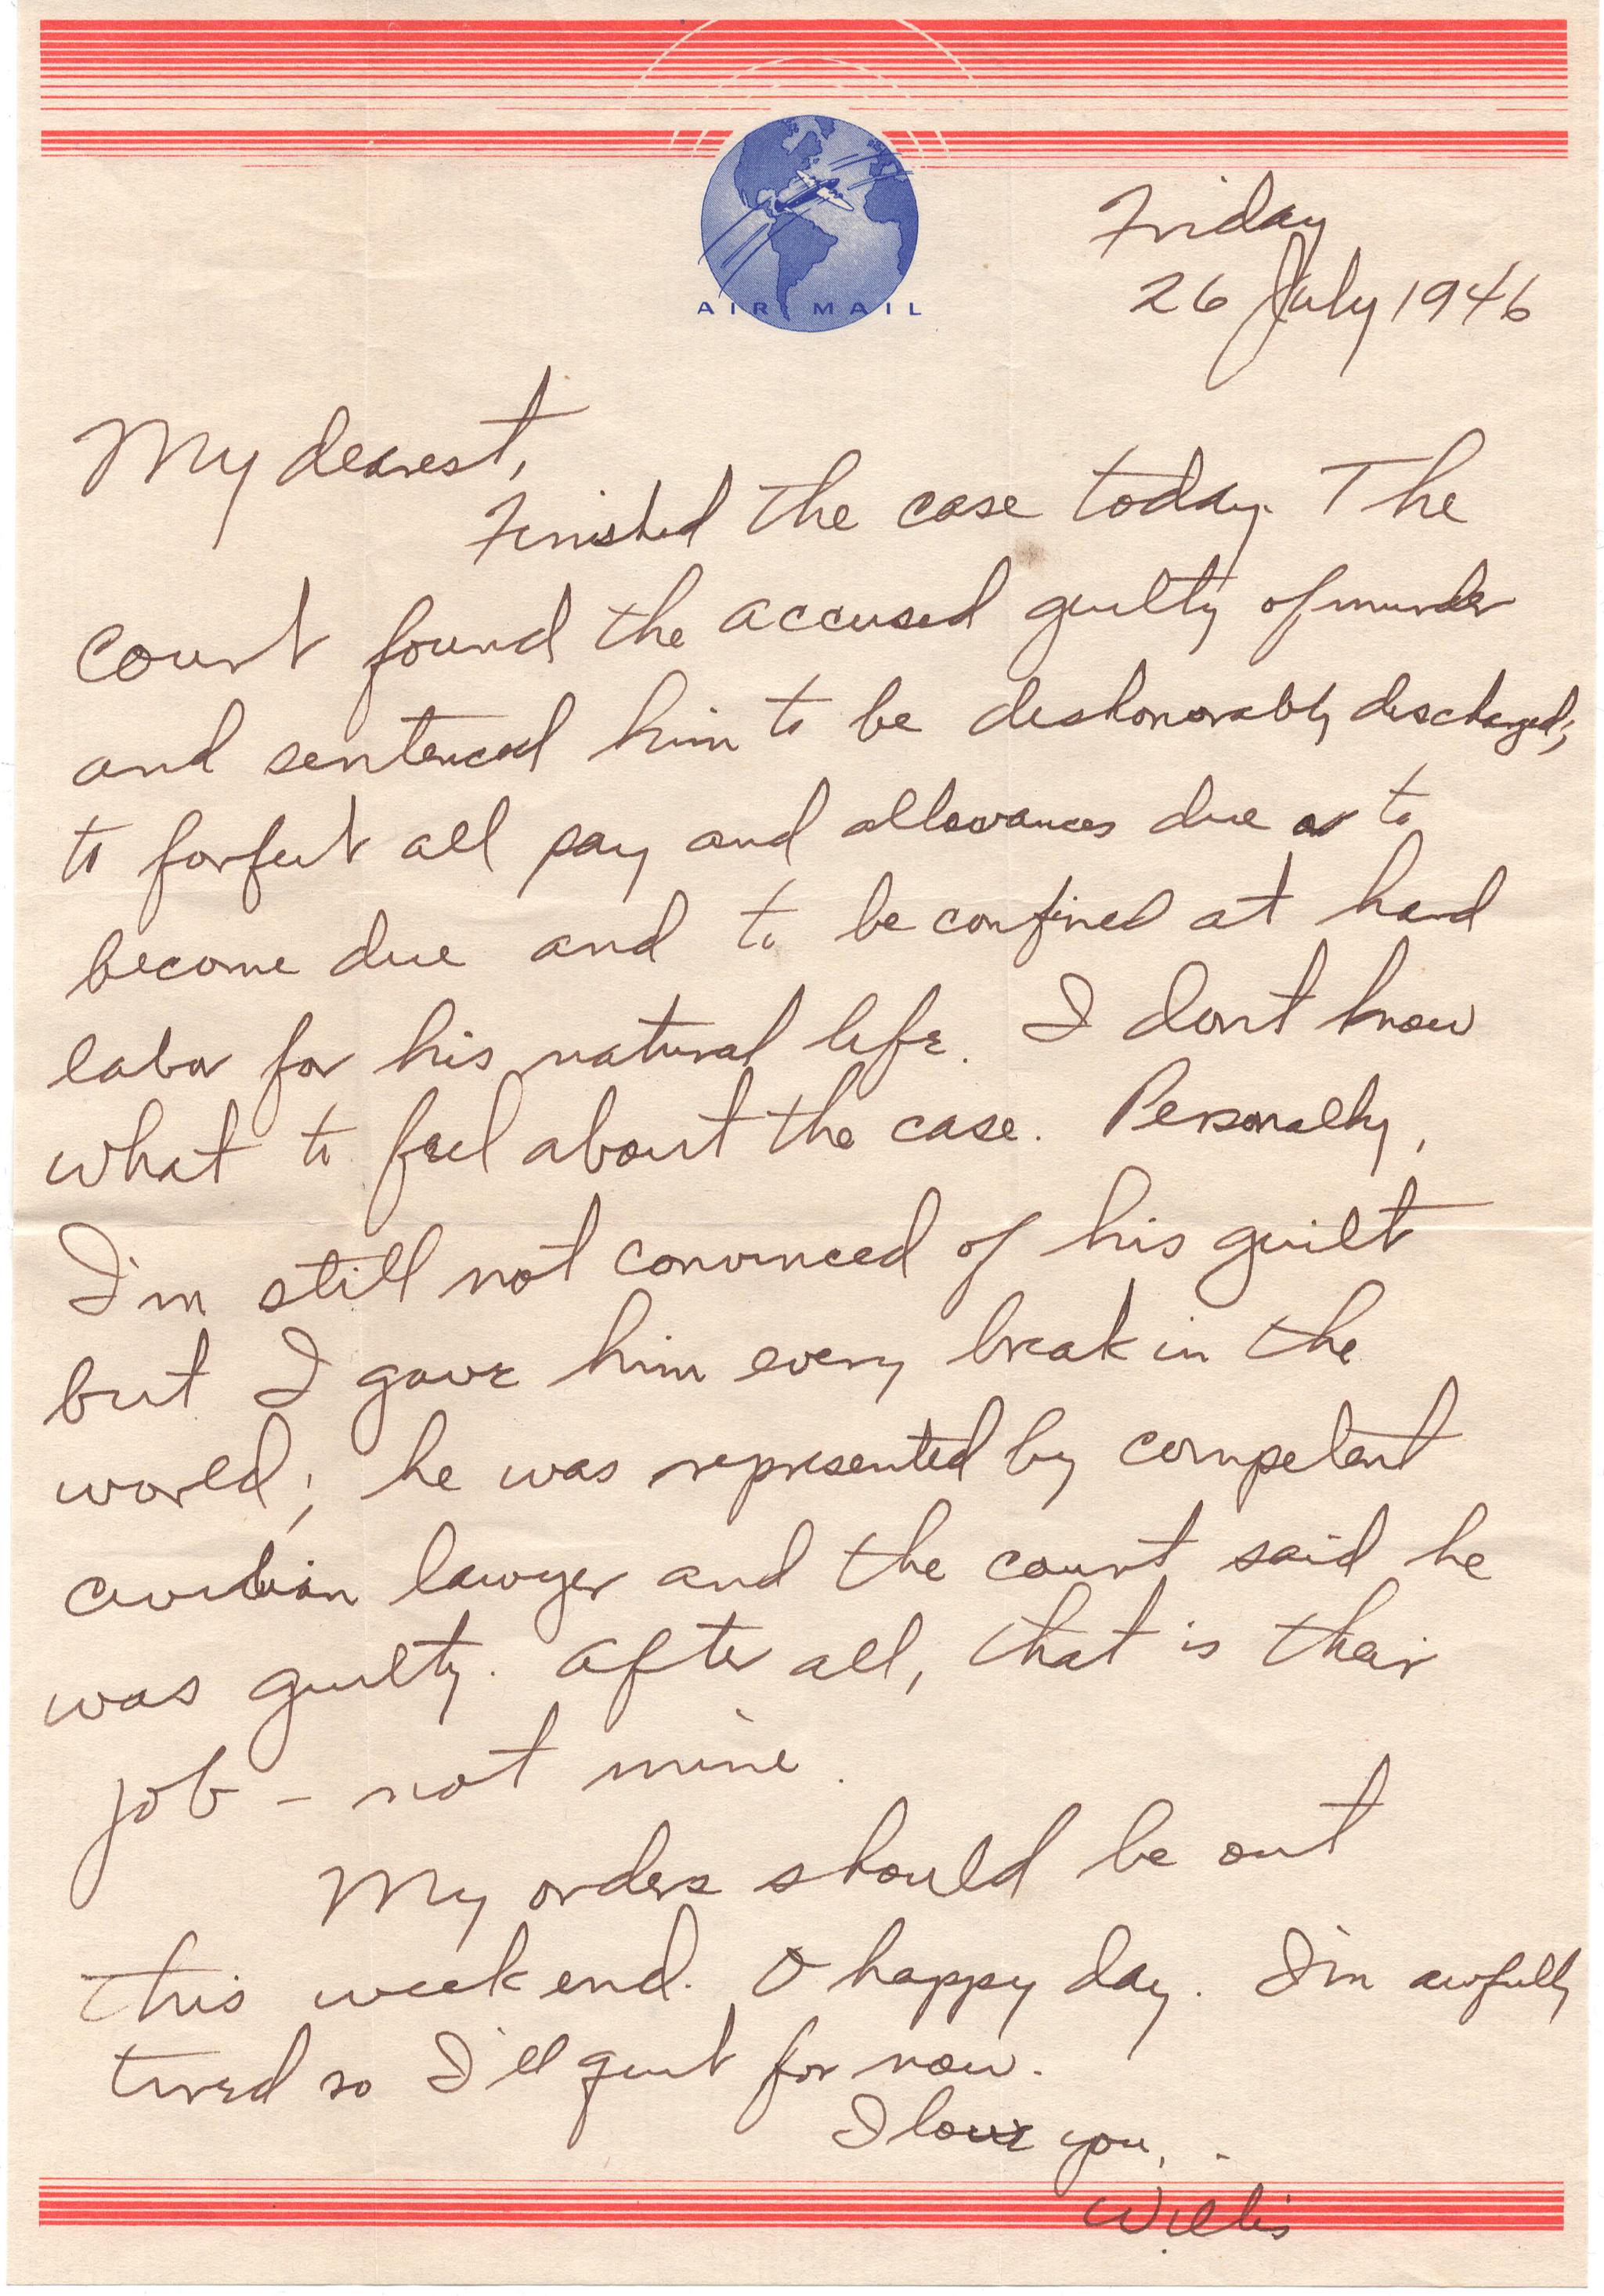 AIR MAIL
Friday
26 July 1946
My dearest,
Finished the case today. The
court found the accused guilty of murder
and sentenced him to be dishonorably discharged;
to forfeit all pay and allowances due or to
become due and to be confined at hard
labor for his natural life. I don't know
what to feel about the case. Personally,
I'm still not convinced of his guilt
but I gave him every break in the
world; he was represented by competent
civilian lawyer and the court said he
was guilty. After all, that is their
job - not mine.
My orders should be out
this week end. O happy day. I'm awfully
tired so I'll quit for now.
I love you,
Willis